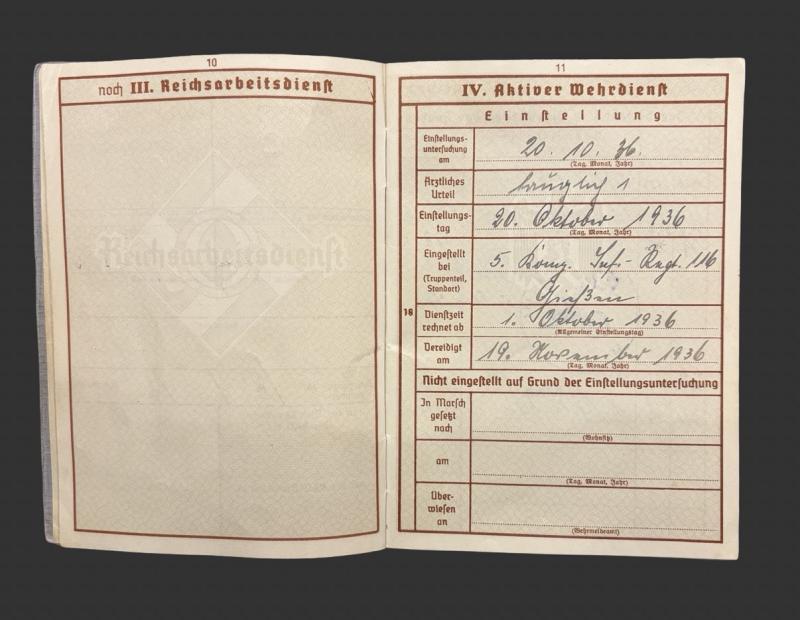 10
noch III. Reichsarbeitsdienst
Reichsarbeitsdienst
11
IV. Aktiver Wehrdienst
Einstellung
Einstellungs-
untersuchung
am
20. 10. 36.
(Tag, Monat, Jahr)
Ärztliches
Urteil
tauglich 1
Einstellungs-
tag
20. Oktober 1936
(Tag, Monat, Jahr)
Eingestellt
bei
(Truppenteil,
Standort)
5. Komp. Inf.-Regt. 116
Gießen
18
Dienstzeit
rechnet ab
1. Oktober 1936
(Allgemeiner Einstellungstag)
Vereidigt
am
19. November 1936
(Tag, Monat, Jahr)
Nicht eingestellt auf Grund der Einstellungsuntersuchung
In Marsch
gesetzt
nach
(Wohnsitz)
am
(Tag, Monat, Jahr)
Über-
wiesen
an
(Wehrmeldeamt)